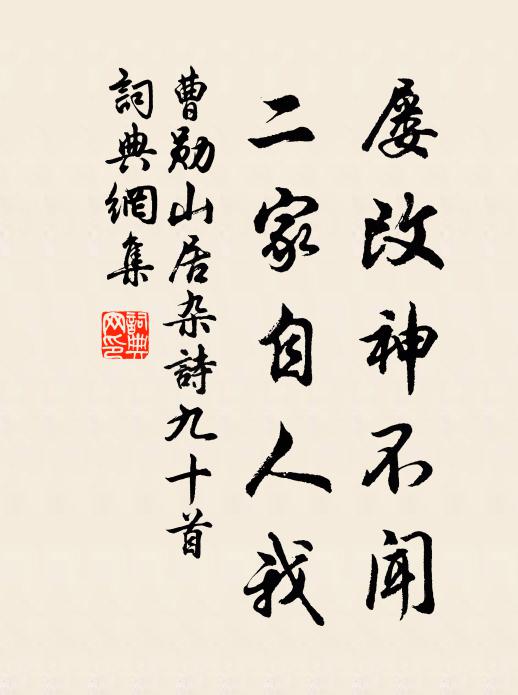 屡改神不闻
二家自人我
曹勋山居杂詩九十首
詞典網集
詞典网印